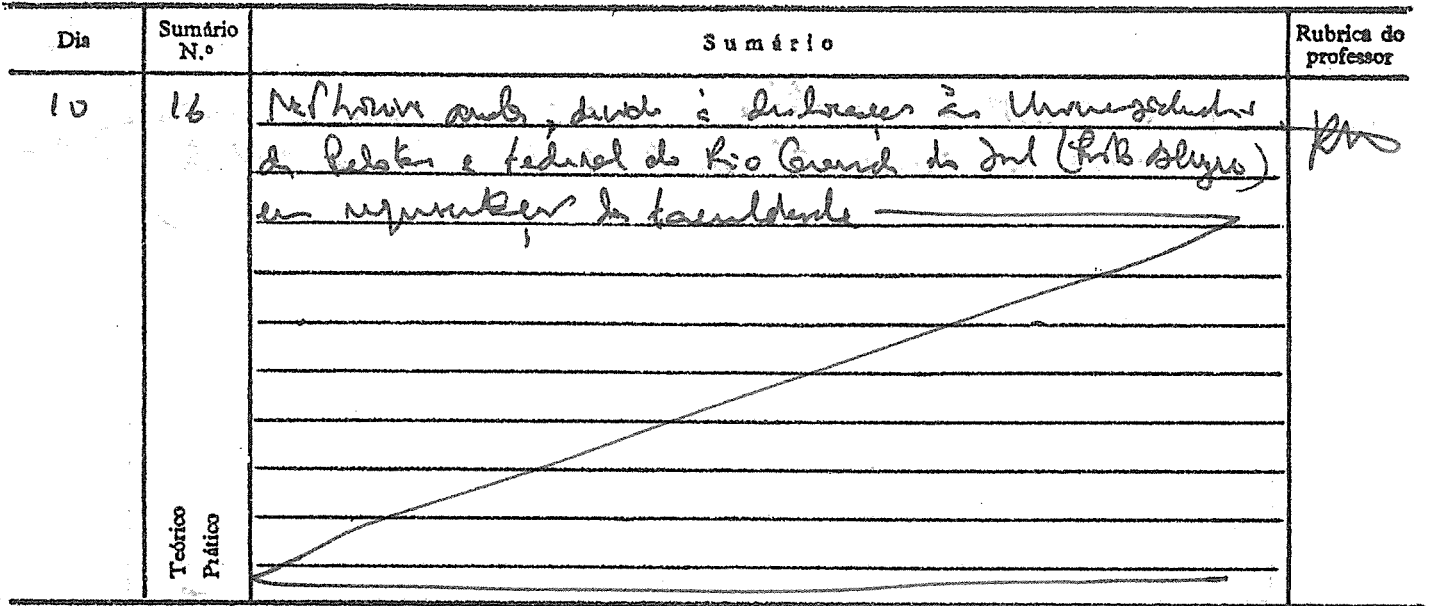 Dia
Sumário N.º
Sumário
Rubrica do professor
10
16
Não houve aula, devido à deslocação às Universidades
de Pelotas e Federal do Rio Grande do Sul (Porto Alegre)
em representação da Faculdade
Teórico
Prático